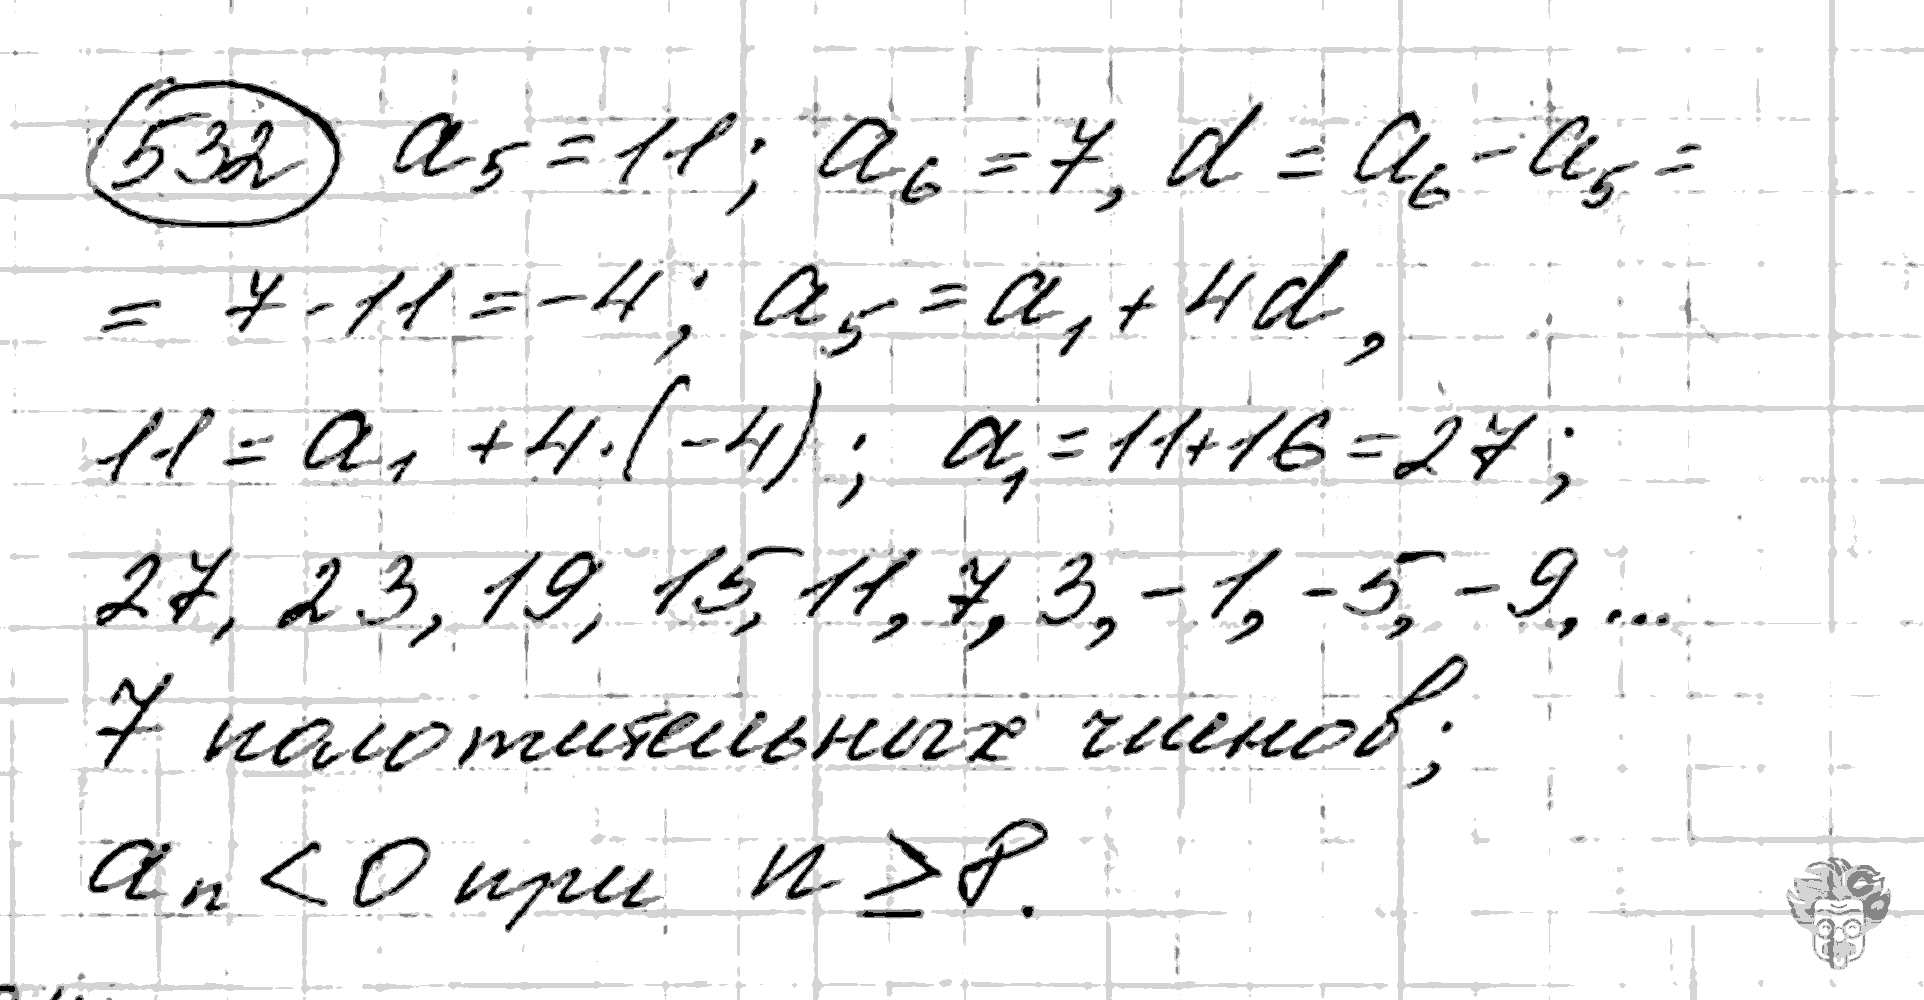 532 a₅ = 11; a₆ = 7, d = a₆ - a₅ =
= 7 - 11 = -4; a₅ = a₁ + 4d,
11 = a₁ + 4·(-4); a₁ = 11+16 = 27;
27, 23, 19, 15, 11, 7, 3, -1, -5, -9, ...
7 положительных членов;
aₙ < 0 при n ≥ 8.